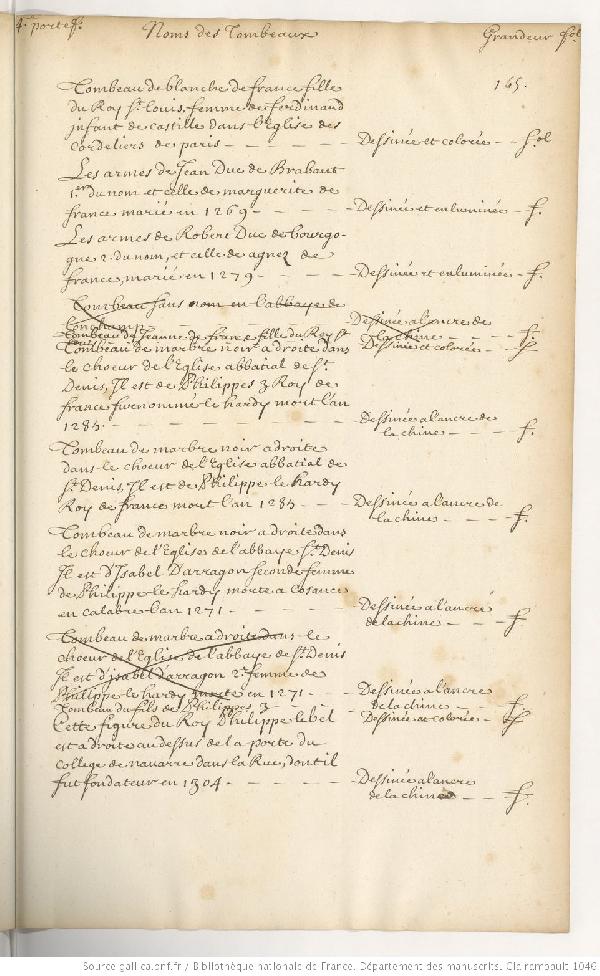 4.e portef. Noms des Tombeaux Grandeur fol
165.
Tombeau de blanche de france fille
du Roy St. Louis, femme de ferdinand
infant de castille dans l'Eglise des
cordeliers de paris - - - - Dessinée et colorée - - fol
Les armes de Jean Duc de Brabant
1.er du nom et celle de marguerite de
france marié en 1269 - - - - Dessinée et enluminée - f.
Les armes de Robert Duc de bourgo-
gne 2. du nom, et celle de agnez de
france, marié en 1279 - - - - Dessinée et enluminée - f.
Tombeau sans nom en l'abbaye de
Longchamp - - - - Dessinée a l'ancre de
la chine - - - f.
Tombeau de Jeanne de france fille du Roy St.
Dessinée et colorée - - f.
Tombeau de marbre noir a droite dans
le choeur de l'Eglise abbatial de St.
Denis, Il est de Philippes 3 Roy de
france surnommé le hardy mort l'an
1285. - - - - Dessinée a l'ancre de
la chine - - - f.
Tombeau de marbre noir a droite
dans le choeur de l'Eglise abbatial de
St. Denis, Il est de Philippe le hardy
Roy de france mort l'an 1285 - - Dessinée a l'ancre de
la chine - - - - f.
Tombeau de marbre noir a droite dans
le choeur de l'Eglise de l'abbaye St. Denis
Il est d'Isabel D'arragon seconde femme
de Philippe le hardy morte a Cosance
en calabre l'an 1271 - - - - Dessinée a l'ancre
de la chine - - - f.
Tombeau de marbre a droite dans le
choeur de l'Eglise de l'abbaye de St. Denis
Il est d'isabel d'arragon 2.e femme de
Philippe le hardy morte en 1271 - - Dessinée a l'ancre
de la chine - - - f.
Tombeau du fils de Philippes 3 - - Dessinée et colorée - f.
Cette figure du Roy Philippe le bel
est a droite au dessus de la porte du
college de navarre dans la Rue, dont il
fut fondateur en 1304 - - - - Dessinée a l'ancre
de la chine - - - f.
Source gallica.bnf.fr / Bibliothèque nationale de France. Département des manuscrits. Clairambault 1046